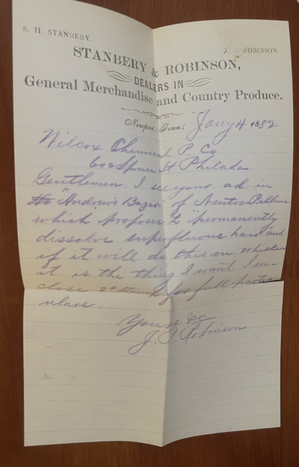 S. H. STANBERY. J. ROBINSON.
STANBERY & ROBINSON,
DEALERS IN
General Merchandise and Country Produce.
Newport, Tenn: Jany 4 1882
Wilcox Chemical P. Co
Spruce St Philada
Gentlemen. I see your ad in
Andrews Bazar of
which propose to permanently
dissolve superflerous hair and
if it will do this on whiskers
it is the thing I want I en-
close 2 stamps for full partic-
ulars.
Yours &c
J. Robinson